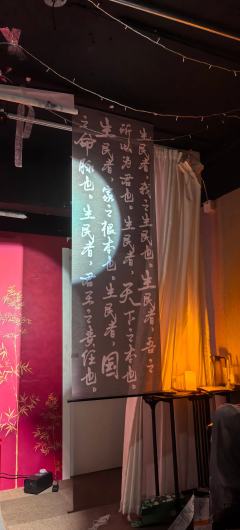 生民者，我之生民也。生民者，吾之
所以为君也。生民者，天下之本也。
生民者，家之根本也。生民者，国
之命脉也。生民者，君王之责任也。